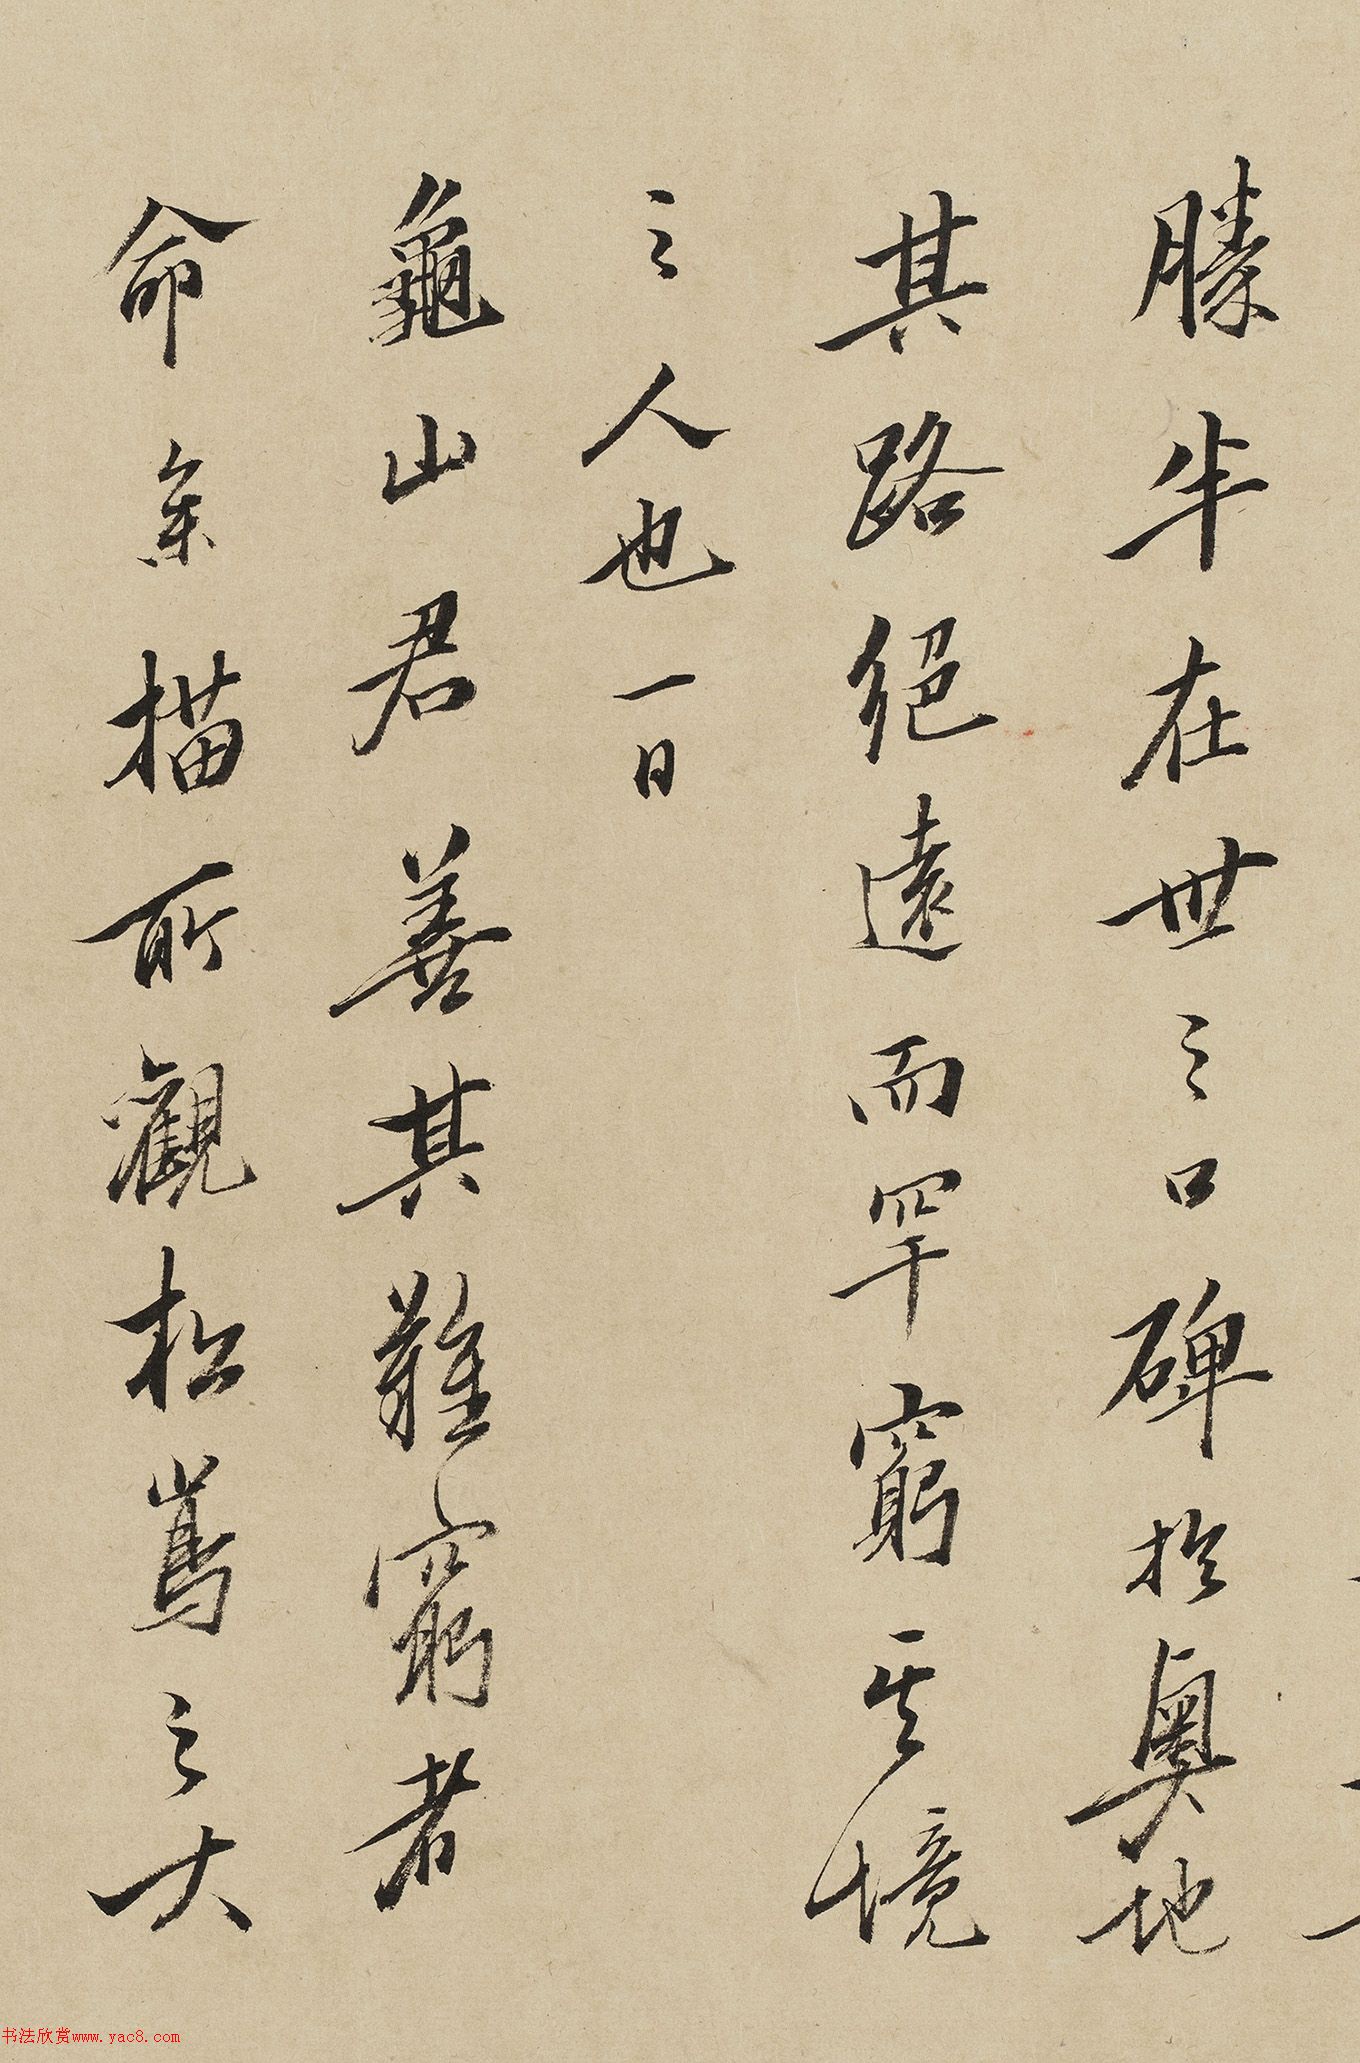 勝半在世之口碑於奥地
其路絕遠而罕窮其境
之人也一日
龜山君善其難窮者
命余描所觀松嶌之大
书法欣赏www.yac8.com